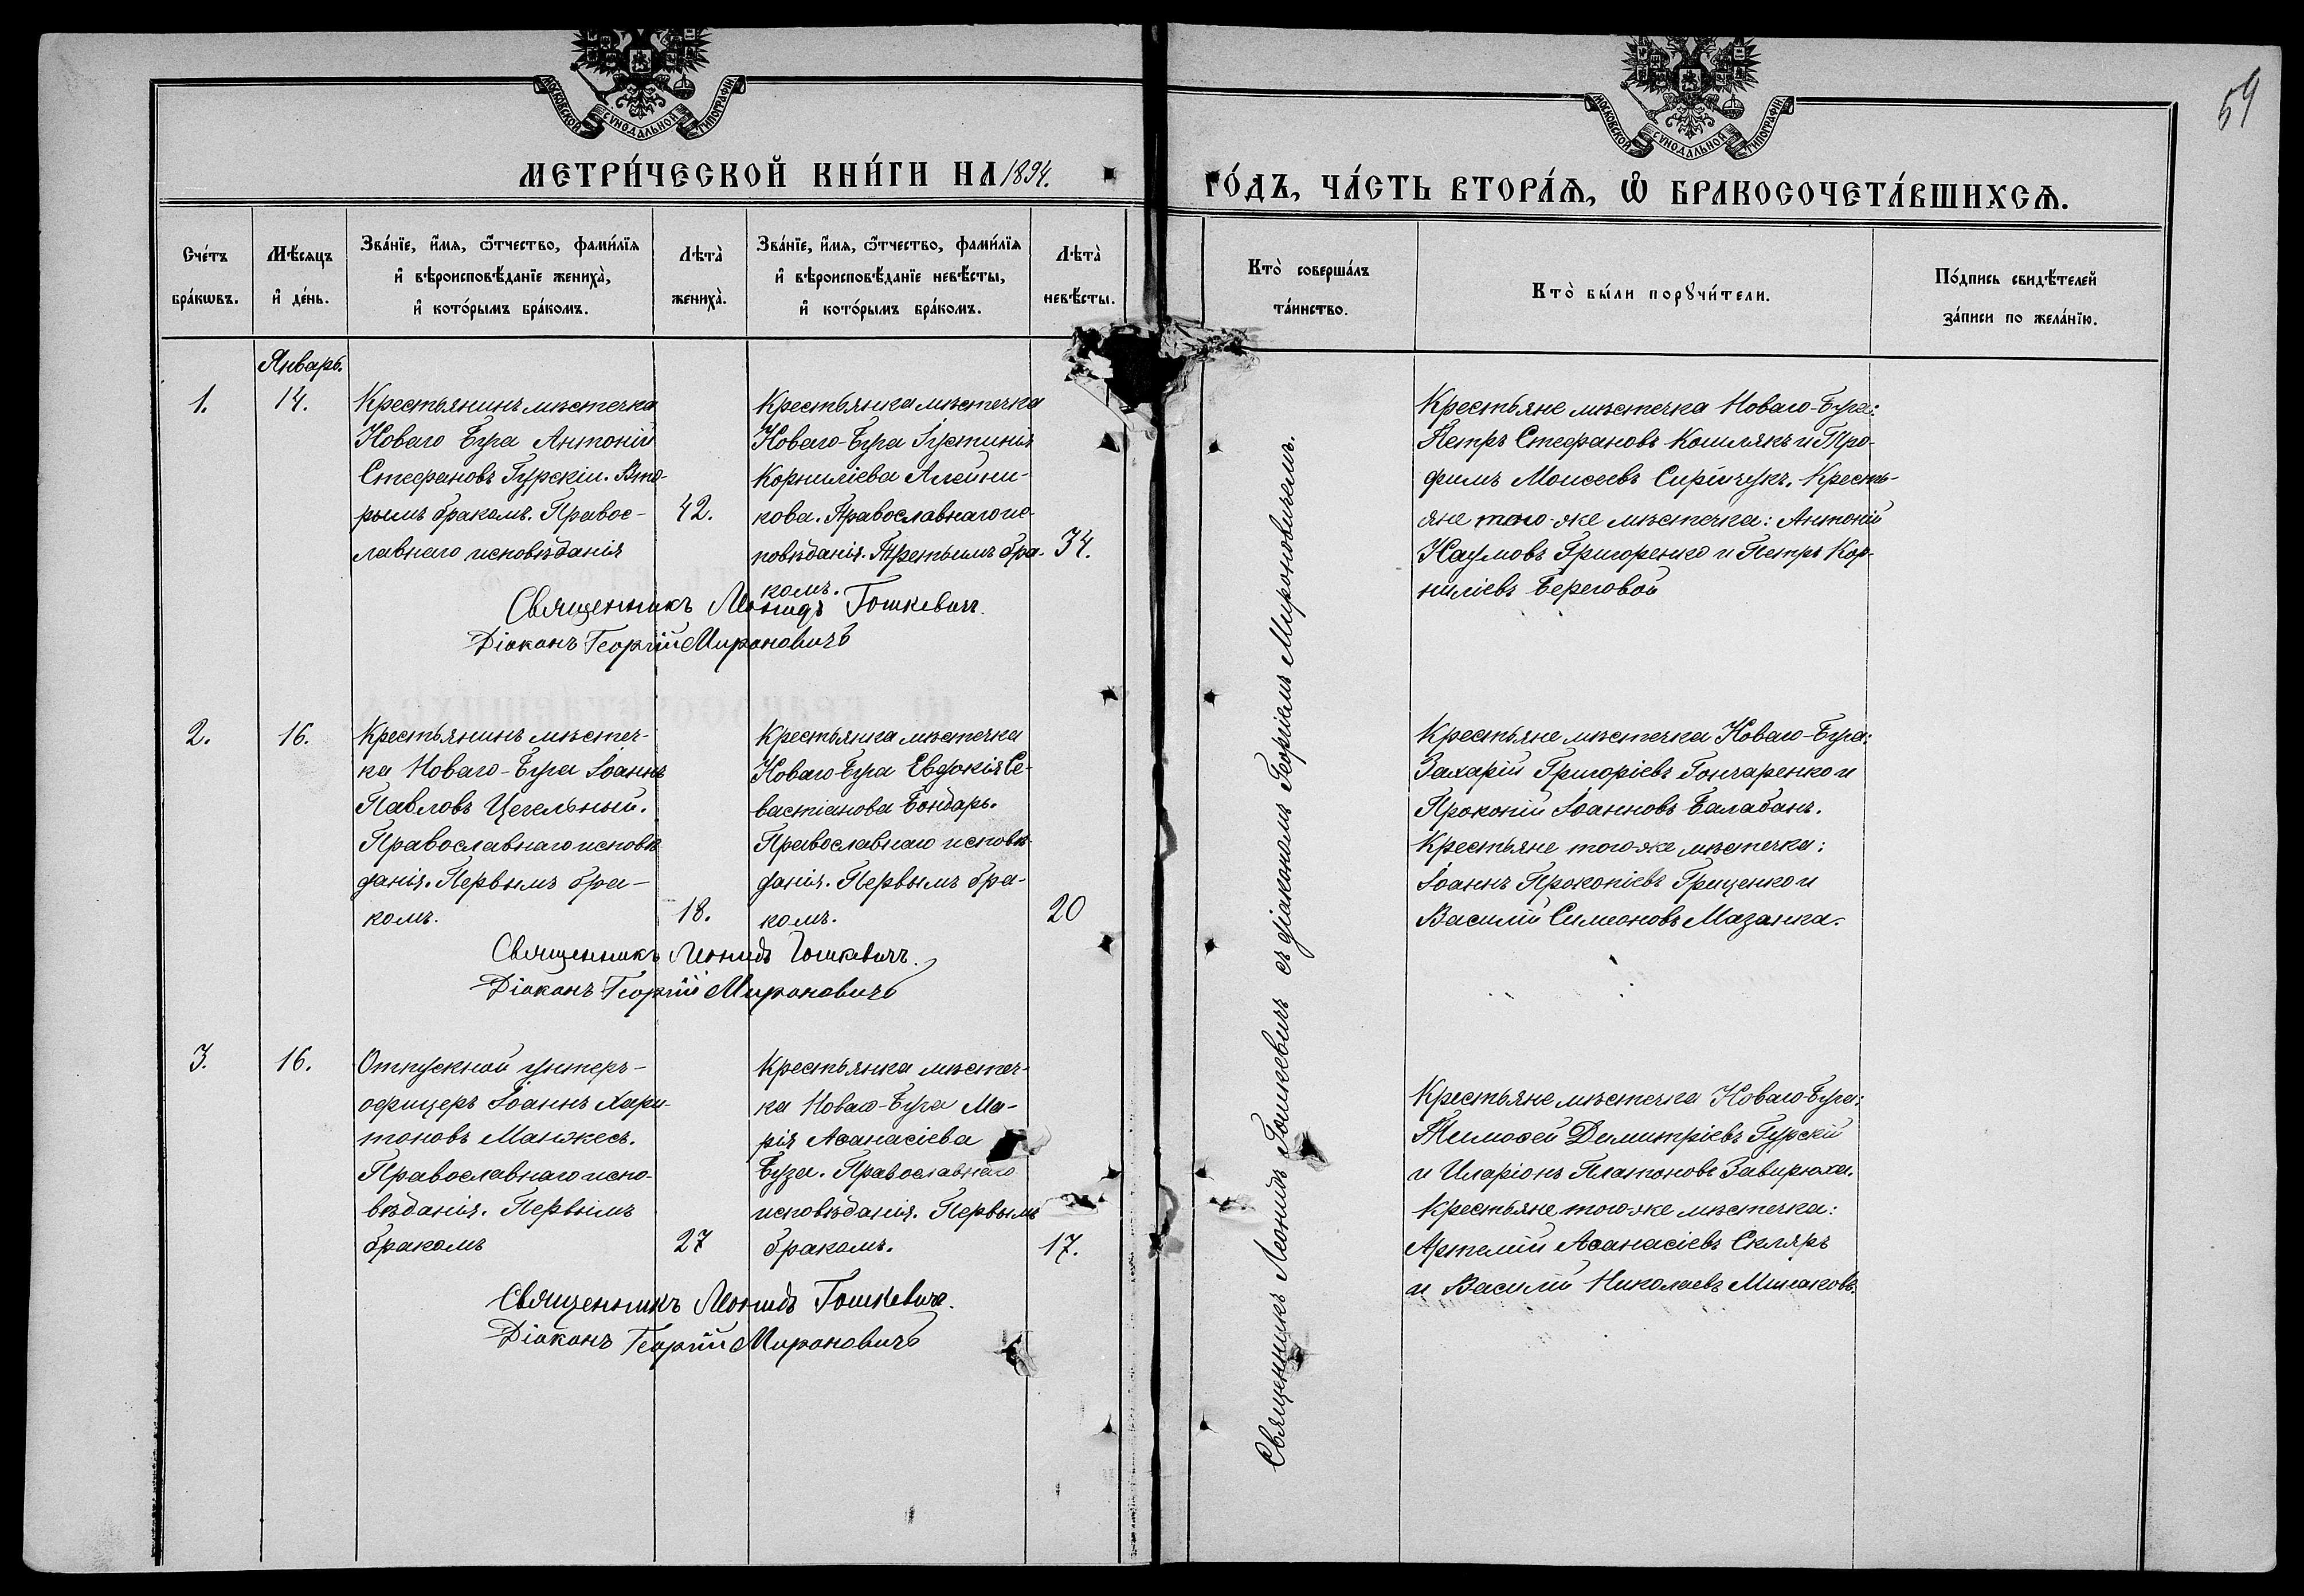 МОСКОВСКОЙ СѴНОДАЛЬНОЙ ТИПОГРАФІИ
МОСКОВСКОЙ СѴНОДАЛЬНОЙ ТИПОГРАФІИ
59
МЕТРИ́ЧЕСКОЙ КНИ́ГИ НА 1894.
ГО́ДЪ, ЧА́СТЬ ВТОРА́Ѧ, Ѽ БРАКОСОЧЕТА́ВШИХСѦ.
Сче́тъ
бра́кωвъ.
Мѣ́сѧцъ
и҆ де́нь.
Зва́нїе, и҆́мѧ, ѻ҆́тчество, фами́лїѧ
и҆ вѣроисповѣ́данїе жениха̀,
и҆ кото́рымъ бра́комъ.
Лѣта̀
жениха̀.
Зва́нїе, и҆́мѧ, ѻ҆́тчество, фами́лїѧ
и҆ вѣроисповѣ́данїе невѣ́сты,
и҆ кото́рымъ бра́комъ.
Лѣта̀
невѣ́сты.
Кто̀ соверша́лъ
та́инство.
Кто̀ бы́ли порꙋчи́тели.
По́дпись свидѣ́телей
за́писи по жела́нїю.
Январь.
1.
14.
Крестьянинъ мѣстечка
Новаго Буга Антоній
Стефановъ Гурскій. Вто-
рымъ бракомъ. Правос-
лавнаго исповѣданія
42.
Крестьянка мѣстечка
Новаго-Буга Іустинія
Корниліева Алейни-
кова. Православнаго ис-
повѣданія. Третьимъ бра-
комъ.
34.
Священникъ Леонидъ Гошкевичъ.
Діаконъ Георгій Мироновичъ
Крестьяне мѣстечка Новаго-Буга:
Петръ Стефановъ Кошлякъ и Тро-
фимъ Моисеевъ Сирійчукъ. Кресть-
яне того-же мѣстечка: Антоній
Наумовъ Григоренко и Петръ Кор-
ниліевъ Береговой
2.
16.
Крестьянинъ мѣстеч-
ка Новаго-Буга Іоаннъ
Павловъ Цегельный.
Православнаго исповѣ
данія. Первымъ бра-
комъ.
18.
Крестьянка мѣстечка
Новаго Буга Евдокія Се-
вастіанова Бондарь.
Православнаго исповѣ-
данія. Первымъ бра-
комъ.
20
Священникъ Леонидъ Гошкевичъ.
Діаконъ Георгій Мироновичъ
Крестьяне мѣстечка Новаго-Буга:
Захарій Григоріевъ Гончаренко и
Прокопій Іоанновъ Балабанъ.
Крестьяне того-же мѣстечка:
Іоаннъ Прокопіевъ Гриценко и
Василій Симеоновъ Мазанка.
3.
16.
Отпускной унтеръ-
офицеръ Іоаннъ Хари-
тоновъ Манжесъ.
Православнаго испо-
вѣданія. Первымъ
бракомъ
27
Крестьянка мѣстеч-
ка Новаго-Буга Ма-
рія Аѳанасіева
Буза. Православнаго
исповѣданія. Первымъ
бракомъ.
17.
Священникъ Леонидъ Гошкевичъ.
Діаконъ Георгій Мироновичъ
Крестьяне мѣстечка Новаго-Буга:
Тимоѳей Димитріевъ Гурскій
и Иларіонъ Платоновъ Завирюха.
Крестьяне того-же мѣстечка:
Артемій Аѳанасіевъ Скляръ
и Василій Николаевъ Мишаковъ.
Священникъ Леонидъ Гошкевичъ съ діакономъ Георгіемъ Мироновичемъ.